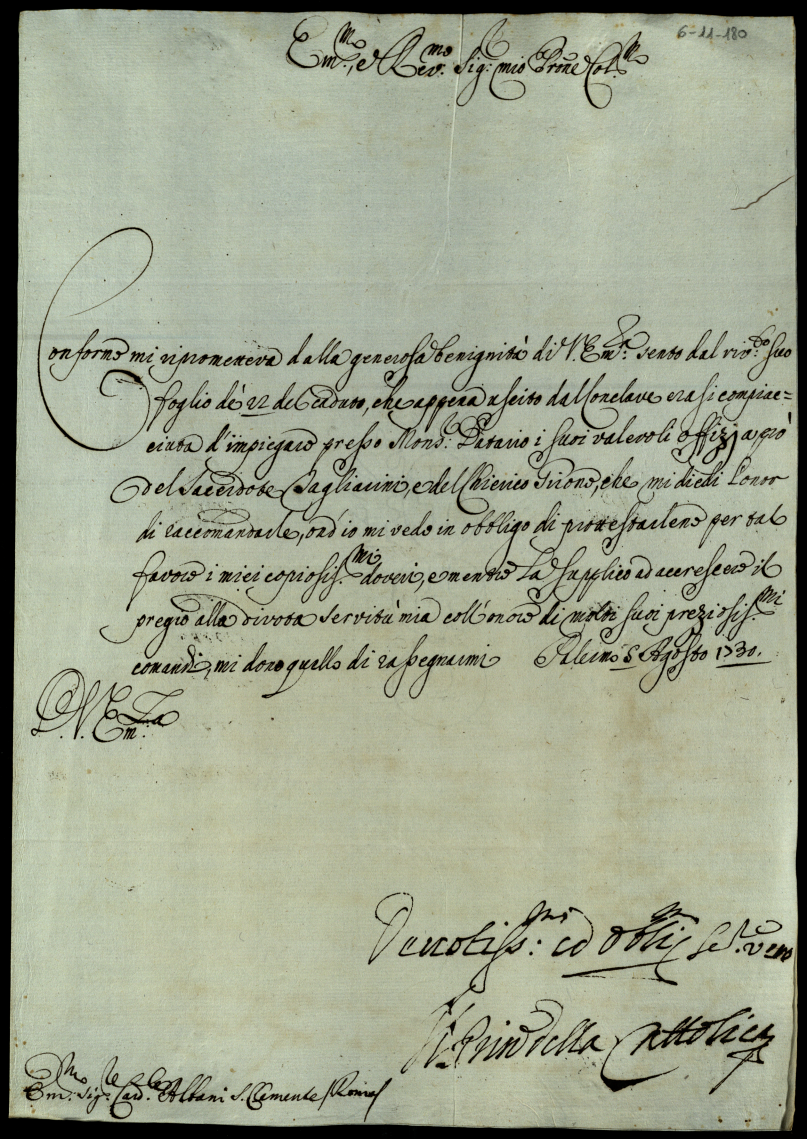 6-11-180
Em.mo, e Rev.mo Sig.r mio Prone Col.mo
Conforme mi riprometteva dalla generosa benignità di V. Em.za sento dal riv.mo suo
foglio de' 22 del caduto, che appena uscito dal Conclave erasi compiac=
ciuta d'impiegare presso Mons.r Datario i suoi valevoli offizj a prò
del Sacerdote Tagliarini, e del Chierico Girone, che mi diedi l'onor
di raccomandarle, ond'io mi vedo in obbligo di protestarlene per tal
favore i miei copiosis.mi doveri, e mentre La supplico ad accrescere il
pregio alla divota servitù mia coll'onore di molti suoi preziosis.mi
comandi, mi dono quello di rassegnarmi Palermo 5 Agosto 1730.
D. V. Em.za
Devotiss.mo ed obb.mo Se.re vero
Il Prin della Cattolica
Em.mo Sig.re Card.le Albani S. Clemente / Roma /